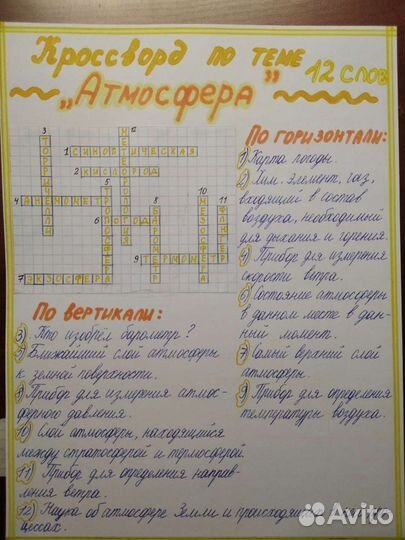 Кроссворд по теме
„Атмосфера”
12 слов
3
12
ТОРРИЧЕЛЛИ
МЕТЕОРОЛОГИЯ
1 СИНОПТИЧЕСКАЯ
2 КИСЛОРОД
5
ТРОПОСФЕРА
10
11
4 АНЕМОМЕТР
8
6 ПОГОДА
БАРОМЕТР
МЕЗОСФЕРА
ФЛЮГЕР
9 ТЕРМОМЕТР
7 ЭКЗОСФЕРА
По горизонтали:
1) Карта погоды.
2) Хим. элемент, газ,
входящий в состав
воздуха, необходимый
для дыхания и горения.
4) Прибор для измерения
скорости ветра.
6) Состояние атмосферы
в данном месте в дан-
ный момент.
7) Самый верхний слой
атмосферы.
9) Прибор для определения
температуры воздуха.
По вертикали:
3) Кто изобрёл барометр?
5) Ближайший слой атмосферы
к земной поверхности.
8) Прибор для измерения атмос-
ферного давления.
10) Слой атмосферы, находящийся
между стратосферой и термосферой.
11) Прибор для определения направ-
ления ветра.
12) Наука об атмосфере Земли и
цессах.
Avito